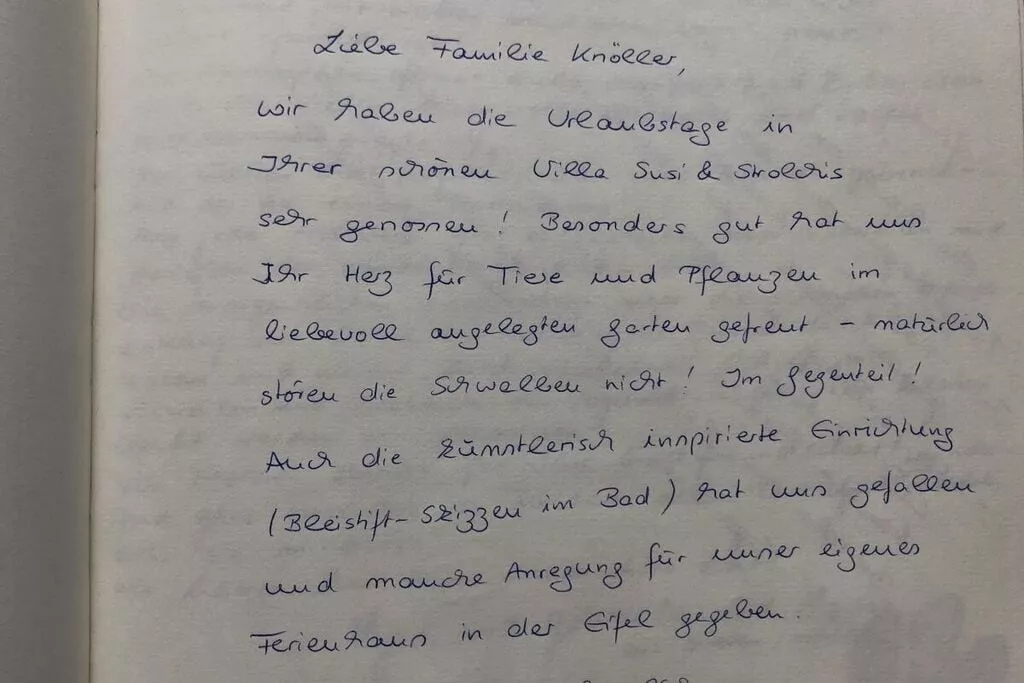 Liebe Familie Knöller,
wir haben die Urlaubstage in
Ihrer schönen Villa Susi & Strolchis
sehr genossen! Besonders gut hat uns
Ihr Herz für Tiere und Pflanzen im
liebevoll angelegten Garten gefreut – natürlich
stören die Schwalben nicht! Im Gegenteil!
Auch die künstlerisch inspirierte Einrichtung
(Bleistift-Skizzen im Bad) hat uns gefallen
und manche Anregung für unser eigenes
Ferienhaus in der Eifel gegeben.